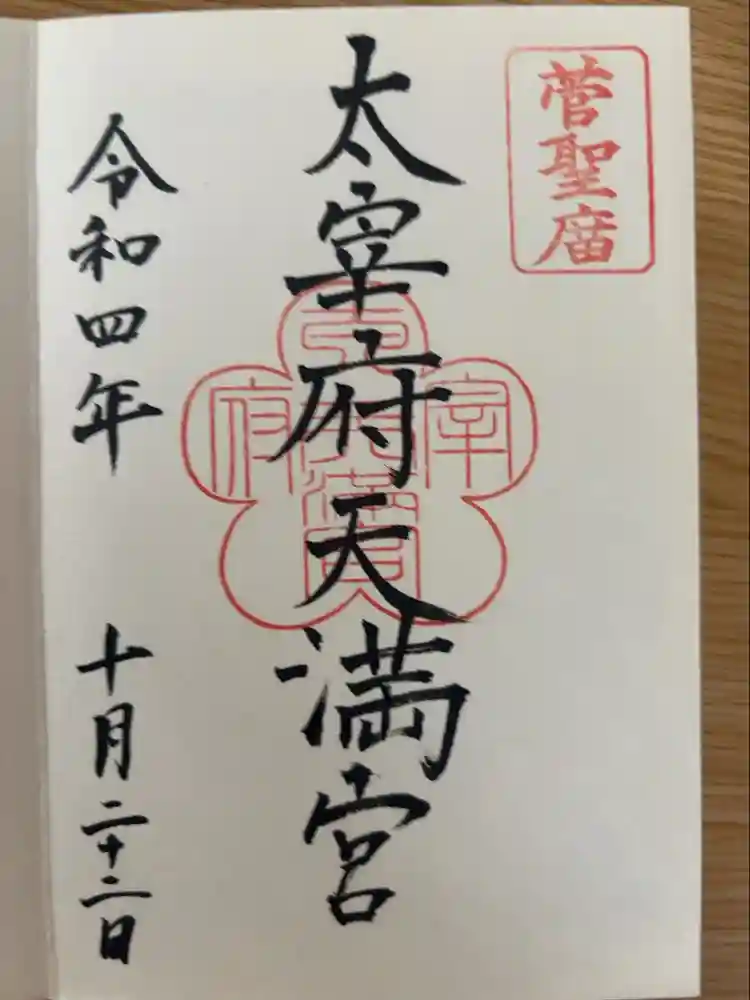 菅聖庿
太宰府天満宮
令和四年 十月二十二日